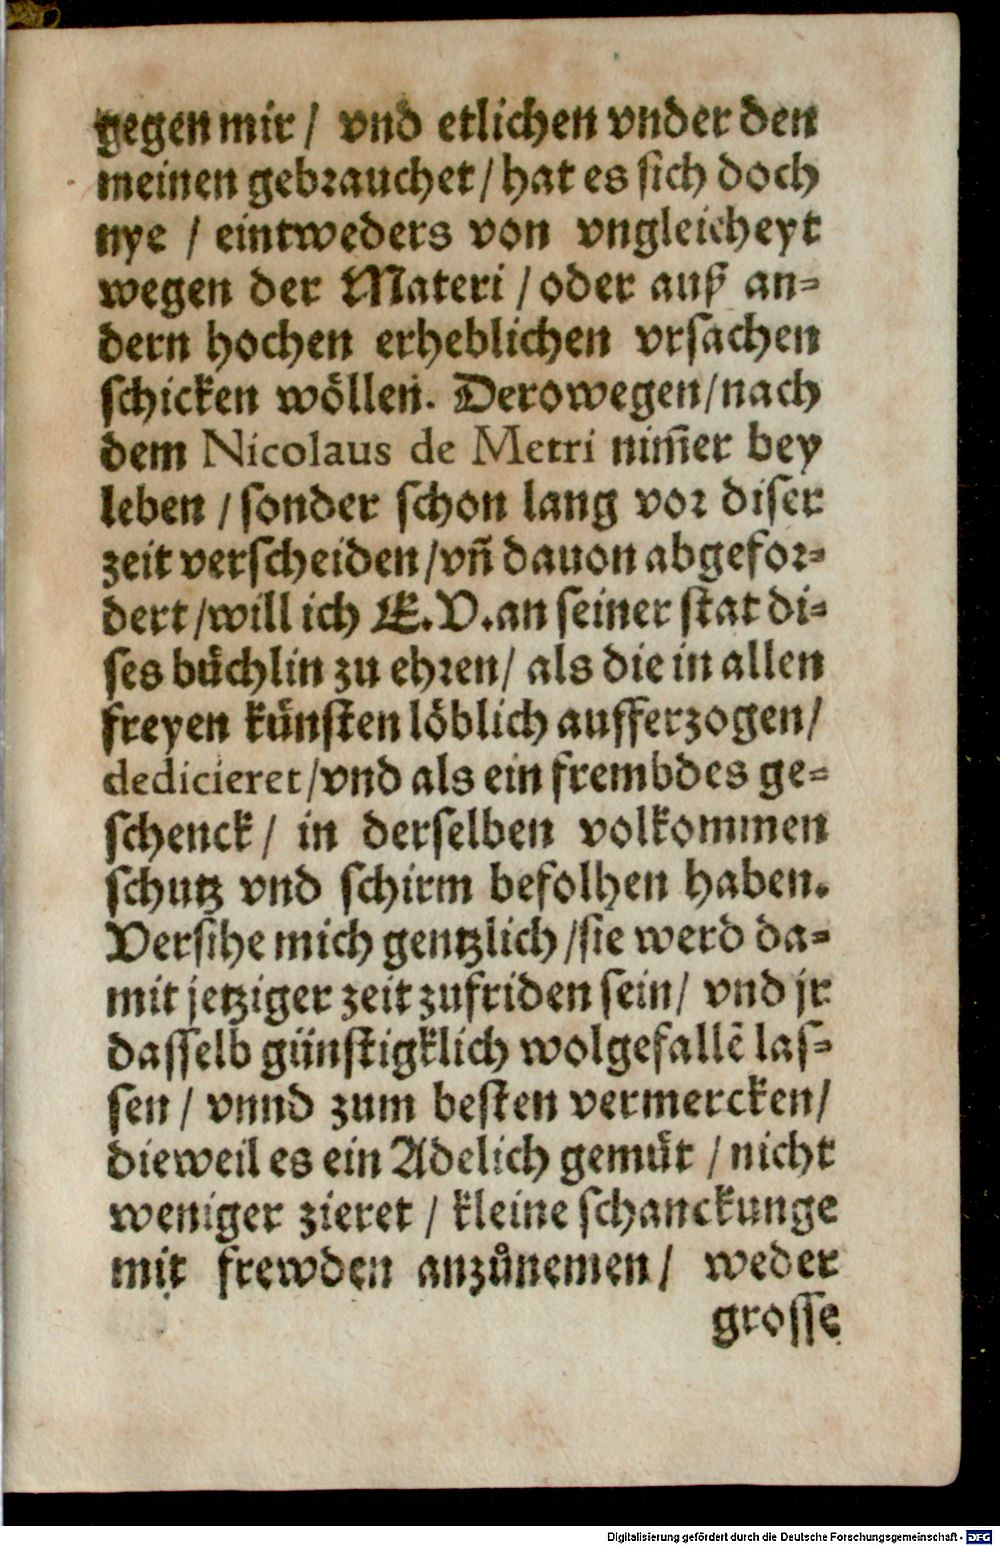 gegen mir / vnd etlichen vnder den
meinen gebrauchet / hat es sich doch
nye / eintweders von vngleicheyt
wegen der Materi / oder auß an-
dern hochen erheblichen vrsachen
schicken wöllen. Derowegen / nach
dem Nicolaus de Metri nim̃er bey
leben / sonder schon lang vor diser
zeit verscheiden / vñ dauon abgefor-
dert / will ich E. V. an seiner stat di-
ses bůchlin zu ehren / als die in allen
freyen künsten löblich aufferzogen /
dedicieret / vnd als ein frembdes ge-
schenck / in derselben volkommen
schutz vnd schirm befolhen haben.
Versihe mich gentzlich / sie werd da-
mit jetziger zeit zufriden sein / vnd jr
dasselb günstigklich wolgefallẽ las-
sen / vnnd zum besten vermercken /
dieweil es ein Adelich gemůt / nicht
weniger zieret / kleine schanckunge
mit frewden anzůnemen / weder
grosse
Digitalisierung gefördert durch die Deutsche Forschungsgemeinschaft - DFG